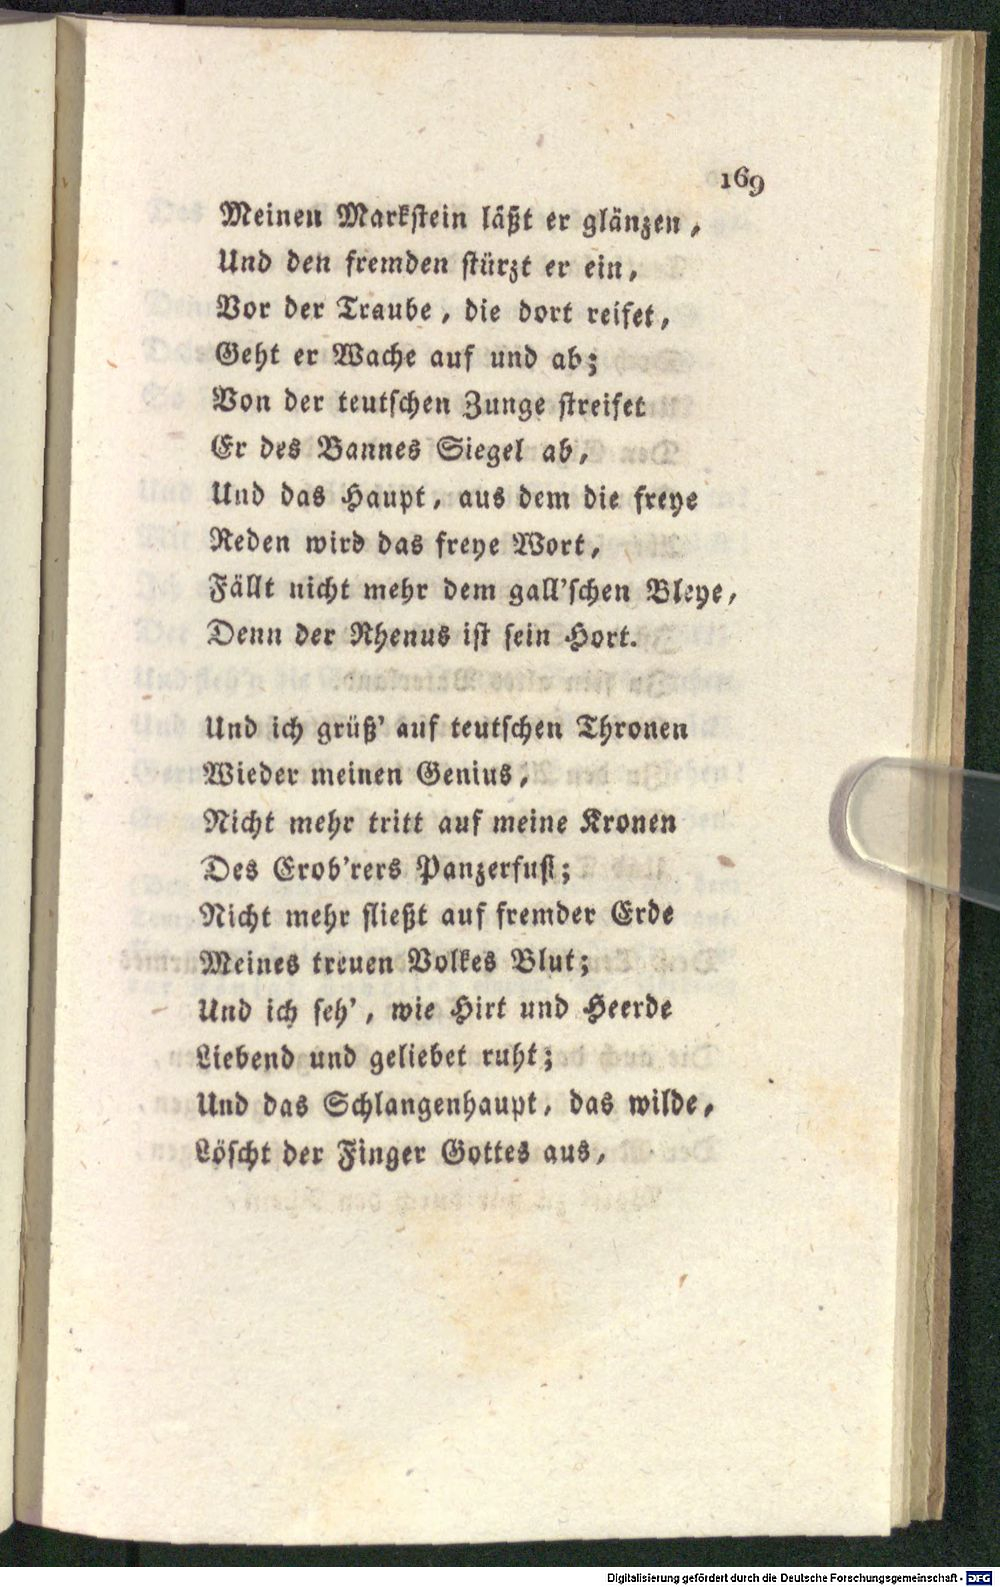 169
Meinen Markstein läßt er glänzen,
Und den fremden stürzt er ein,
Vor der Traube, die dort reifet,
Geht er Wache auf und ab;
Von der teutschen Zunge streifet
Er des Bannes Siegel ab,
Und das Haupt, aus dem die freye
Reden wird das freye Wort,
Fällt nicht mehr dem gall'schen Bleye,
Denn der Rhenus ist sein Hort.
Und ich grüß' auf teutschen Thronen
Wieder meinen Genius,
Nicht mehr tritt auf meine Kronen
Des Erob'rers Panzerfuß;
Nicht mehr fließt auf fremder Erde
Meines treuen Volkes Blut;
Und ich seh', wie Hirt und Heerde
Liebend und geliebet ruht;
Und das Schlangenhaupt, das wilde,
Löscht der Finger Gottes aus,
Digitalisierung gefördert durch die Deutsche Forschungsgemeinschaft - DFG